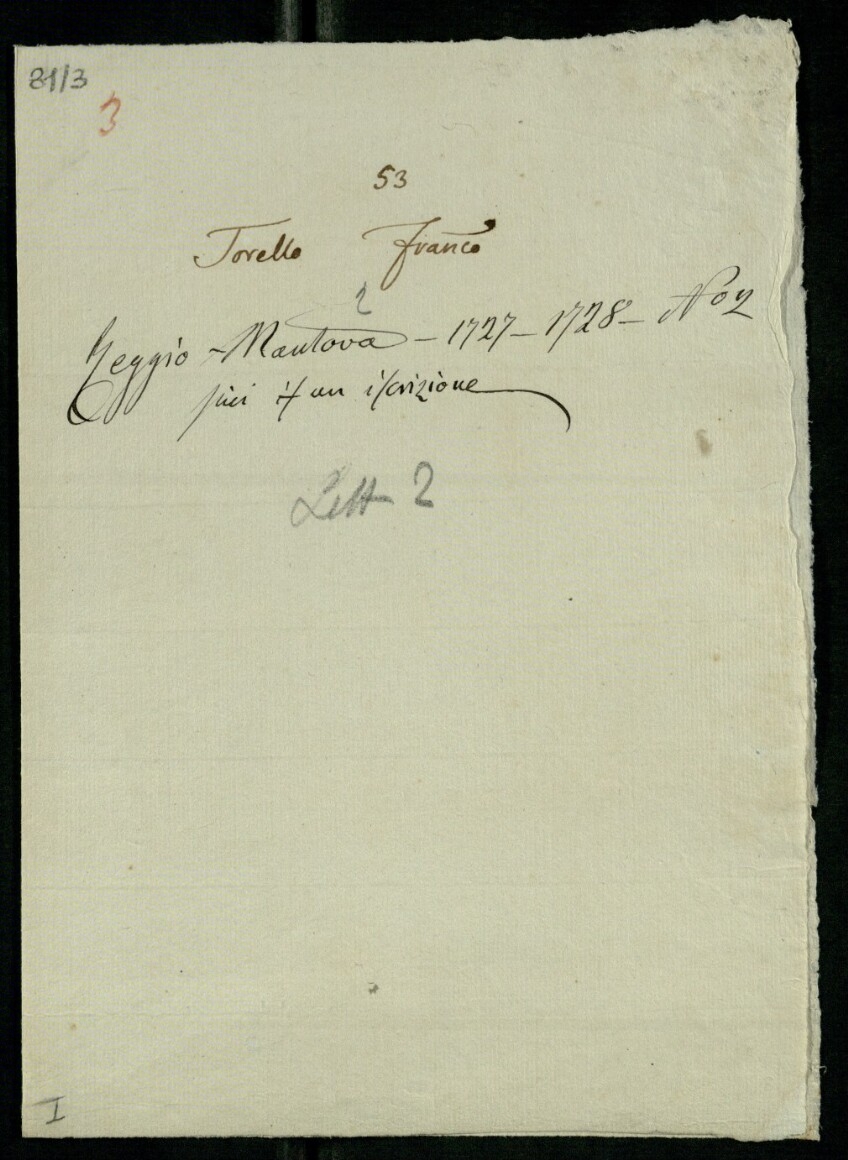 81/3
3
53
Torello Franco
2
Reggio - Mantova - 1727 - 1728 - No 2
più un iscrizione
Lett 2
I